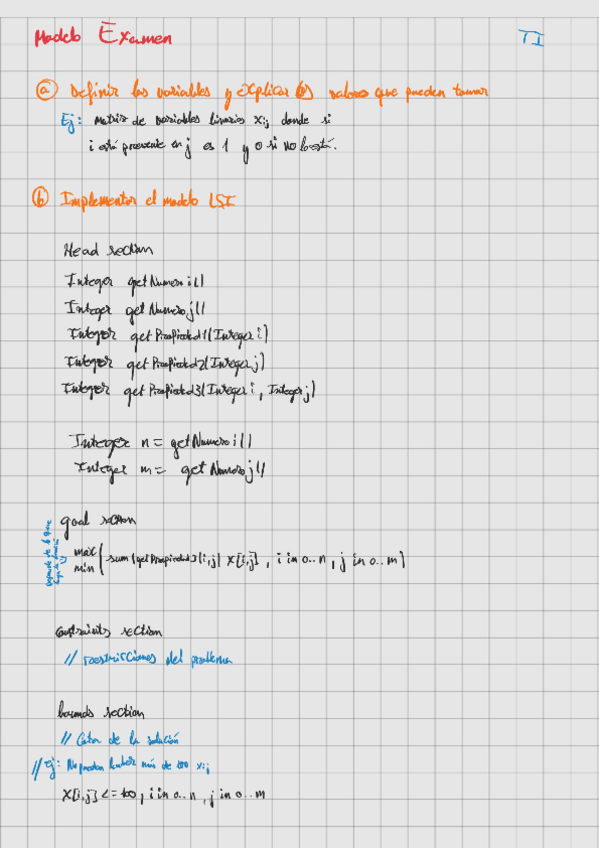 Modelo Examen
TI
a Definir las variables y explicar los valores que pueden tomar
Ej: Matriz de variables binarias xij donde si
i está presente en j es 1 y 0 si no lo está.
b Implementar el modelo LSI
Head section
Integer getNumeroi()
Integer getNumeroj()
Integer getPropiedad1(Integer i)
Integer getPropiedad2(Integer j)
Integer getPropiedad3(Integer i, Integer j)
Integer n = getNumeroi()
Integer m = getNumeroj()
goal section
Depende de lo que
max
min
(sum(getPropiedad3(i,j) x[i,j], i in 0..n, j in 0..m)
constraints section
// restricciones del problema
bounds section
// Cota de la solución
// Ej: No pueden haber más de 100 xij
x[i,j] <= 100, i in 0..n, j in 0..m